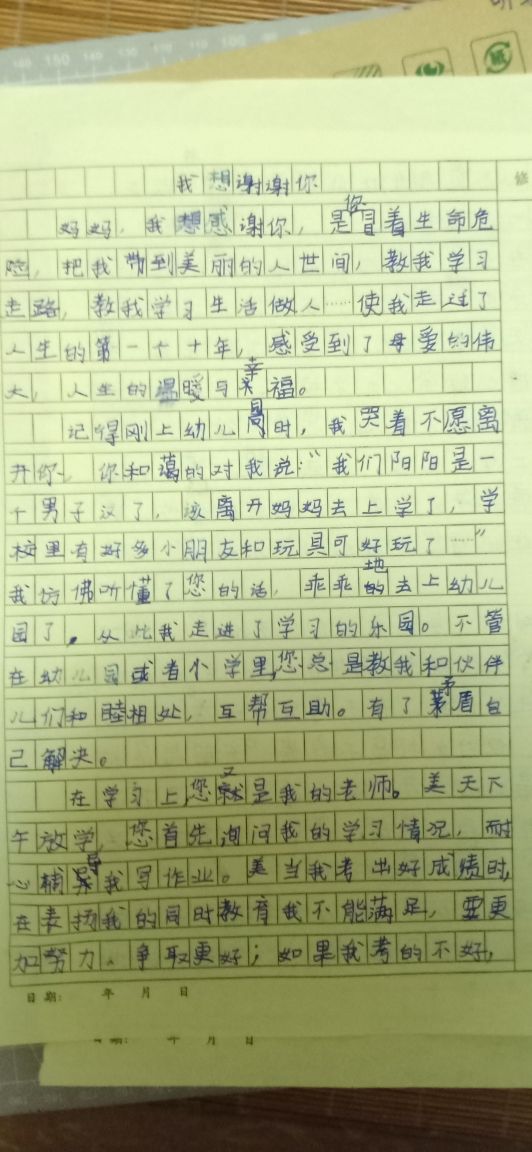 我想谢谢你
妈妈，我想感谢你，是您冒着生命危
险，把我带到美丽的人世间，教我学习
走路，教我学习生活做人……使我走过了
人生的第一个十年，感受到了母爱的伟
大，人生的温暖与幸福。
记得刚上幼儿园时，我哭着不愿离
开你，你和蔼的对我说：“我们阳阳是一
个男子汉了，该离开妈妈去上学了，学
校里有好多小朋友和玩具可好玩了……”
我仿佛听懂了您的话，乖乖地去上幼儿
园了。从此我走进了学习的乐园。不管
在幼儿园或者小学里，您总是教我和伙伴
儿们和睦相处，互帮互助。有了矛盾自
己解决。
在学习上，您又是我的老师。每天下
午放学，您首先询问我的学习情况，耐
心辅导我写作业。当我考出好成绩时，
在表扬我的同时教育我不能满足，要更
加努力、争取更好；如果我考的不好，
日期： 年 月 日
年 月 日